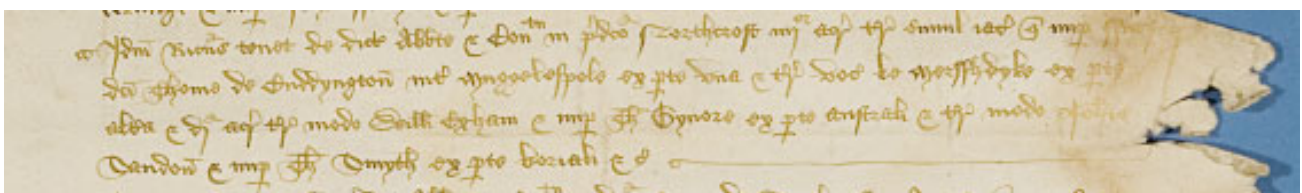 Idm Ricus tenet de dict Abbte & Con in pdco Northcroft iiij acr tr simul iac q nup
dci Thome de Enddyngton int Muggelespole ex pte una & tr voc le Mersshdyke ex pte
alba & di acr tr modo Willi Exham & nup Th Gynore ex pte australi & tr modo Johis
Sandon & nup Th Smyth ex pte boriali & c